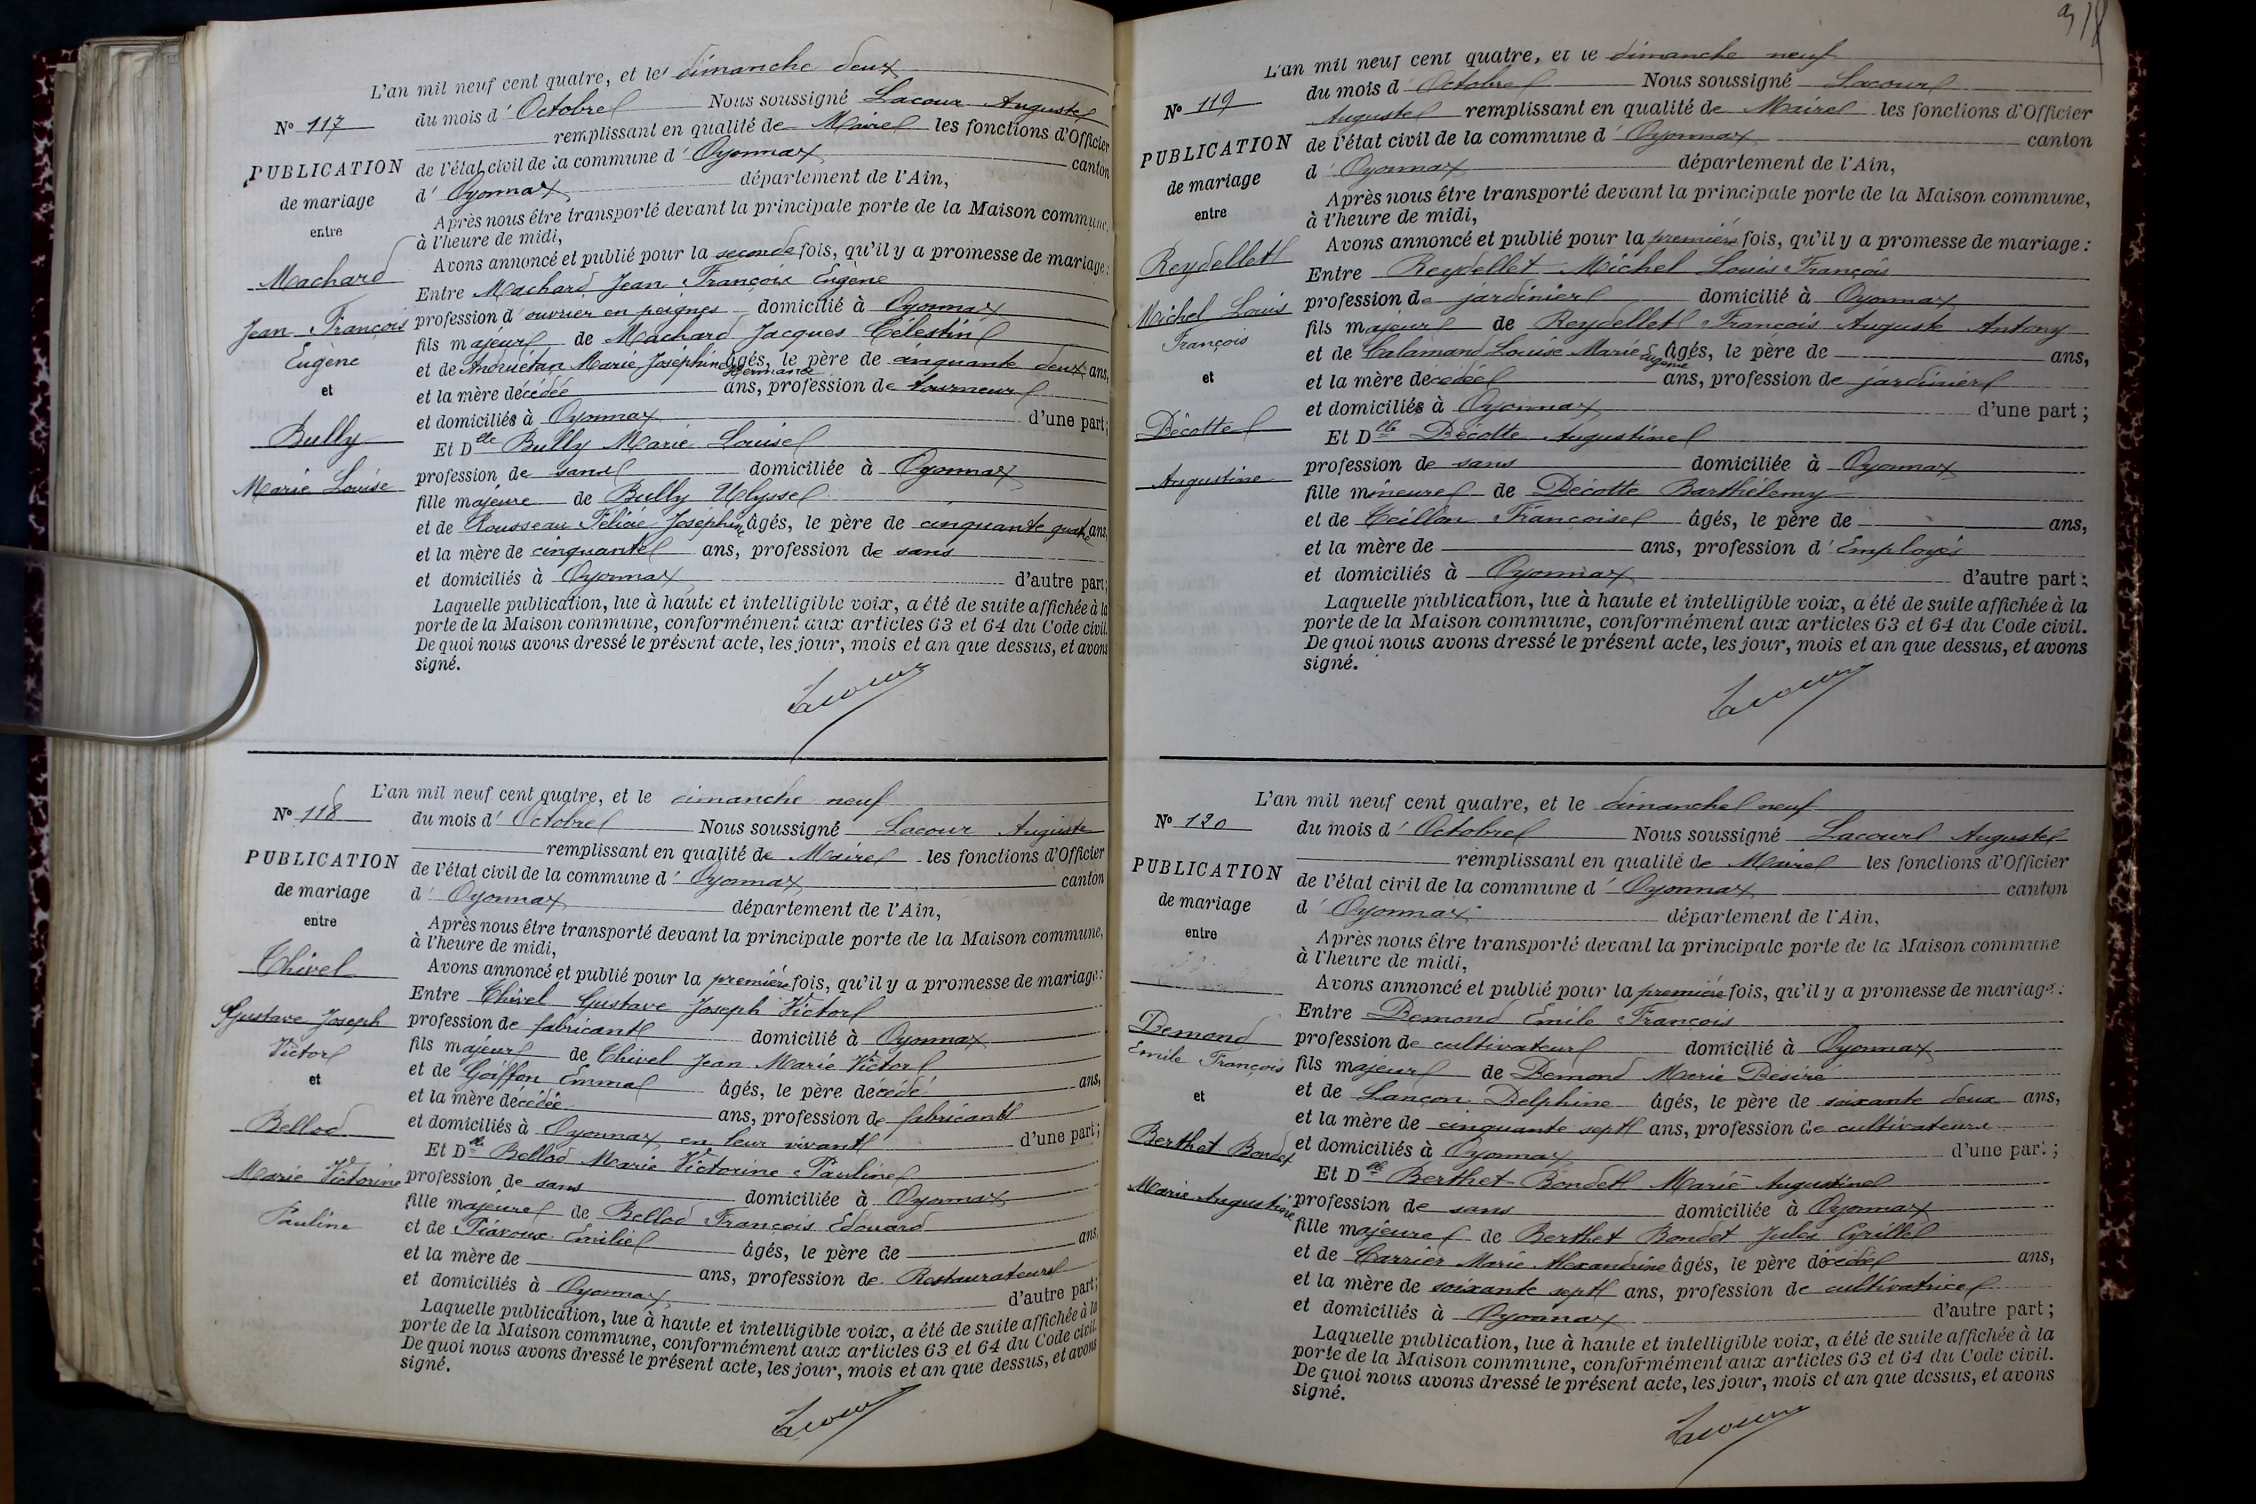 L'an mil neuf cent quatre, et le dimanche deux
du mois d'Octobre Nous soussigné Lacour Auguste
remplissant en qualité de Maire les fonctions d'Officier
de l'état civil de la commune d'Oyonnax canton
d'Oyonnax département de l'Ain,
Après nous être transporté devant la principale porte de la Maison commune,
à l'heure de midi,
Avons annoncé et publié pour la seconde fois, qu'il y a promesse de mariage:
Entre Machard Jean François Eugène
profession d'ouvrier en peignes domicilié à Oyonnax
fils majeur de Machard Jacques Célestin
et de Marie Joséphine Hermance âgés, le père de cinquante deux ans,
et la mère décédée ans, profession de tourneur
et domiciliés à Oyonnax d'une part;
Et Dlle Bully Marie Louise
profession de sans domiciliée à Oyonnax
fille majeure de Bully Ulysse
et de Rousseau Félicie Joséphine âgés, le père de cinquante quatre ans,
et la mère de cinquante ans, profession de sans
et domiciliés à Oyonnax d'autre part;
Laquelle publication, lue à haute et intelligible voix, a été de suite affichée à la
porte de la Maison commune, conformément aux articles 63 et 64 du Code civil.
De quoi nous avons dressé le présent acte, les jour, mois et an que dessus, et avons
signé.
Lacour
No 117
PUBLICATION
de mariage
entre
Machard
Jean François
Eugène
et
Bully
Marie Louise
L'an mil neuf cent quatre, et le dimanche neuf
du mois d'Octobre Nous soussigné Lacour Auguste
remplissant en qualité de Maire les fonctions d'Officier
de l'état civil de la commune d'Oyonnax canton
d'Oyonnax département de l'Ain,
Après nous être transporté devant la principale porte de la Maison commune,
à l'heure de midi,
Avons annoncé et publié pour la première fois, qu'il y a promesse de mariage:
Entre Chivel Gustave Joseph Victor
profession de fabricant domicilié à Oyonnax
fils majeur de Chivel Jean Marie Victor
et de Goiffon Emma âgés, le père décédé ans,
et la mère décédée ans, profession de fabricant
et domiciliés à Oyonnax en leur vivant d'une part;
Et Dlle Bellod Marie Victorine Pauline
profession de sans domiciliée à Oyonnax
fille majeure de Bellod François Edouard
et de Piavoux Emilie âgés, le père de ans,
et la mère de ans, profession de Restaurateurs
et domiciliés à Oyonnax d'autre part;
Laquelle publication, lue à haute et intelligible voix, a été de suite affichée à la
porte de la Maison commune, conformément aux articles 63 et 64 du Code civil.
De quoi nous avons dressé le présent acte, les jour, mois et an que dessus, et avons
signé.
Lacour
No 118
PUBLICATION
de mariage
entre
Chivel
Gustave Joseph
Victor
et
Bellod
Marie Victorine
Pauline
L'an mil neuf cent quatre, et le dimanche neuf
du mois d'Octobre Nous soussigné Lacour
Auguste remplissant en qualité de Maire les fonctions d'Officier
de l'état civil de la commune d'Oyonnax canton
d'Oyonnax département de l'Ain,
Après nous être transporté devant la principale porte de la Maison commune,
à l'heure de midi,
Avons annoncé et publié pour la première fois, qu'il y a promesse de mariage:
Entre Reydellet Michel Louis François
profession de jardinier domicilié à Oyonnax
fils majeur de Reydellet François Auguste Antony
et de Calamand Louise Marie Eugénie âgés, le père de ans,
et la mère décédée ans, profession de jardinier
et domiciliés à Oyonnax d'une part;
Et Dlle Décotte Augustine
profession de sans domiciliée à Oyonnax
fille mineure de Décotte Barthélemy
et de Ceillon Françoise âgés, le père de ans,
et la mère de ans, profession d'Employés
et domiciliés à Oyonnax d'autre part;
Laquelle publication, lue à haute et intelligible voix, a été de suite affichée à la
porte de la Maison commune, conformément aux articles 63 et 64 du Code civil.
De quoi nous avons dressé le présent acte, les jour, mois et an que dessus, et avons
signé.
Lacour
No 119
PUBLICATION
de mariage
entre
Reydellet
Michel Louis
François
et
Décotte
Augustine
L'an mil neuf cent quatre, et le dimanche neuf
du mois d'Octobre Nous soussigné Lacour Auguste
remplissant en qualité de Maire les fonctions d'Officier
de l'état civil de la commune d'Oyonnax canton
d'Oyonnax département de l'Ain,
Après nous être transporté devant la principale porte de la Maison commune
à l'heure de midi,
Avons annoncé et publié pour la première fois, qu'il y a promesse de mariage:
Entre Demond Emile François
profession de cultivateur domicilié à Oyonnax
fils majeur de Demond Marie Désiré
et de Lançon Delphine âgés, le père de soixante deux ans,
et la mère de cinquante sept ans, profession de cultivateurs
et domiciliés à Oyonnax d'une part;
Et Dlle Berthet-Bondet Marie Augustine
profession de sans domiciliée à Oyonnax
fille majeure de Berthet Bondet Jules Cyrille
et de Carrier Marie Alexandrine âgés, le père décédé ans,
et la mère de soixante sept ans, profession de cultivatrice
et domiciliés à Oyonnax d'autre part;
Laquelle publication, lue à haute et intelligible voix, a été de suite affichée à la
porte de la Maison commune, conformément aux articles 63 et 64 du Code civil.
De quoi nous avons dressé le présent acte, les jour, mois et an que dessus, et avons
signé.
Lacour
No 120
PUBLICATION
de mariage
entre
Demond
Emile François
et
Berthet Bondet
Marie Augustine